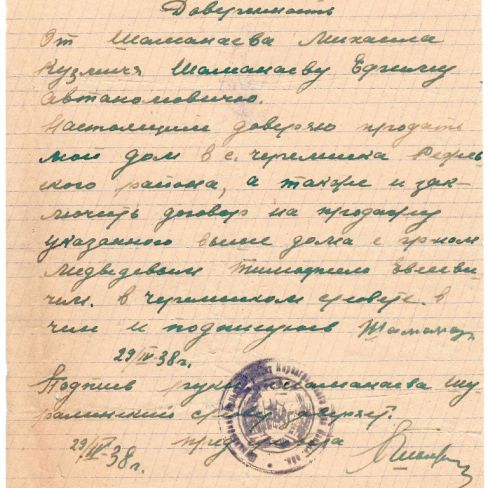 Доверенность
От Шаманаева Михаила
Кузмича Шаманаеву Ефиму
Автаномовичю.
Настоящим доверяю продать
мой дом в с. Черемшка Режев-
ского района, а также и зак-
лючить договор на продажу
указанного выше дома с гр-ном
Медведевым Тимофеем
чем. в Черемшском с/совете. в
чем и подпишусь Шаманаев
29/IV-38 г.
Подпись руки Шаманаева Шу-
ралинский с/совет
пред. с/совета
29/IV-38 г.